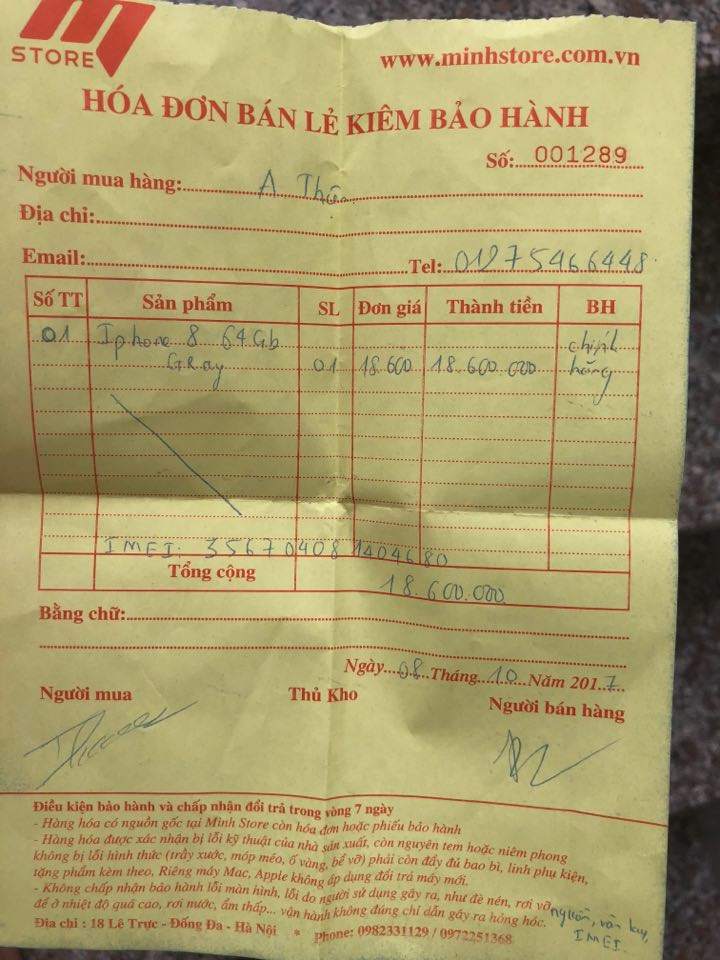 M
STORE
www.minhstore.com.vn
HÓA ĐƠN BÁN LẺ KIÊM BẢO HÀNH
Số: 001289
Người mua hàng: A
Địa chỉ:
Email: Tel: 01275466448
Số TT Sản phẩm SL Đơn giá Thành tiền BH
01 Iphone 8 64Gb chính
GRay 01 18.600 18.600.000 hãng
IMEI: 356704081404680
Tổng cộng 18.600.000
Bằng chữ:
Ngày 08 Tháng 10 Năm 2017
Người mua Thủ Kho Người bán hàng
Điều kiện bảo hành và chấp nhận đổi trả trong vòng 7 ngày
- Hàng hóa có nguồn gốc tại Minh Store còn hóa đơn hoặc phiếu bảo hành
- Hàng hóa được xác nhận bị lỗi kỹ thuật của nhà sản xuất, còn nguyên tem hoặc niêm phong
không bị lỗi hình thức (trầy xước, móp méo, ố vàng, bể vỡ) phải còn đầy đủ bao bì, linh phụ kiện,
tặng phẩm kèm theo. Riêng máy Mac, Apple không áp dụng đổi trả máy mới.
- Không chấp nhận bảo hành lỗi màn hình, lỗi do người sử dụng gây ra, như đè nén, rơi vỡ nguồn, vân tay,
để ở nhiệt độ quá cao, rơi nước, ẩm thấp... vận hành không đúng chỉ dẫn gây ra hỏng hóc. IMEI.
Địa chỉ : 18 Lê Trực - Đống Đa - Hà Nội * Phone: 0982331129 / 0972251368